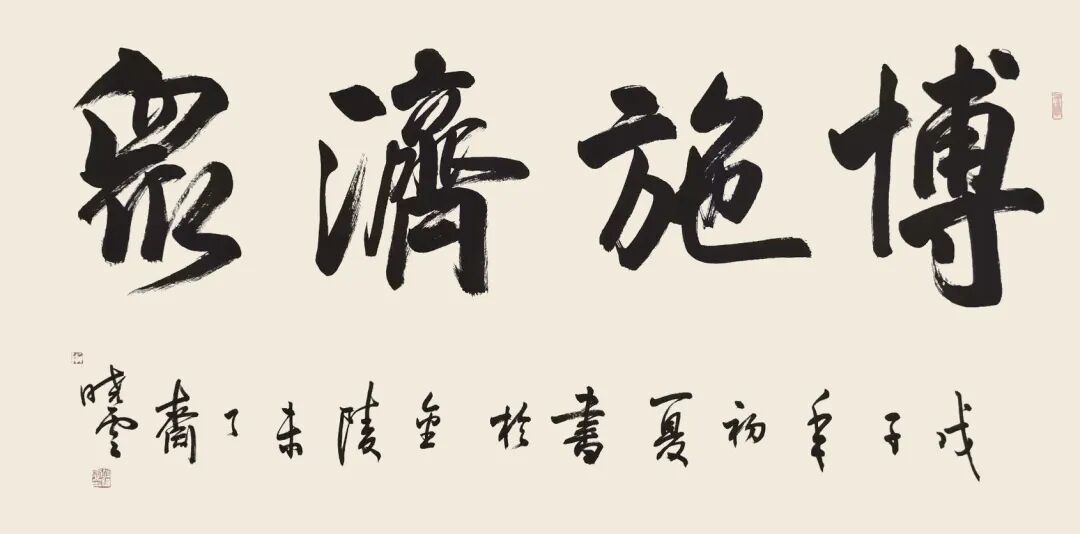 博施濟眾
戊子年初夏書於金陵未了齋 曉雲